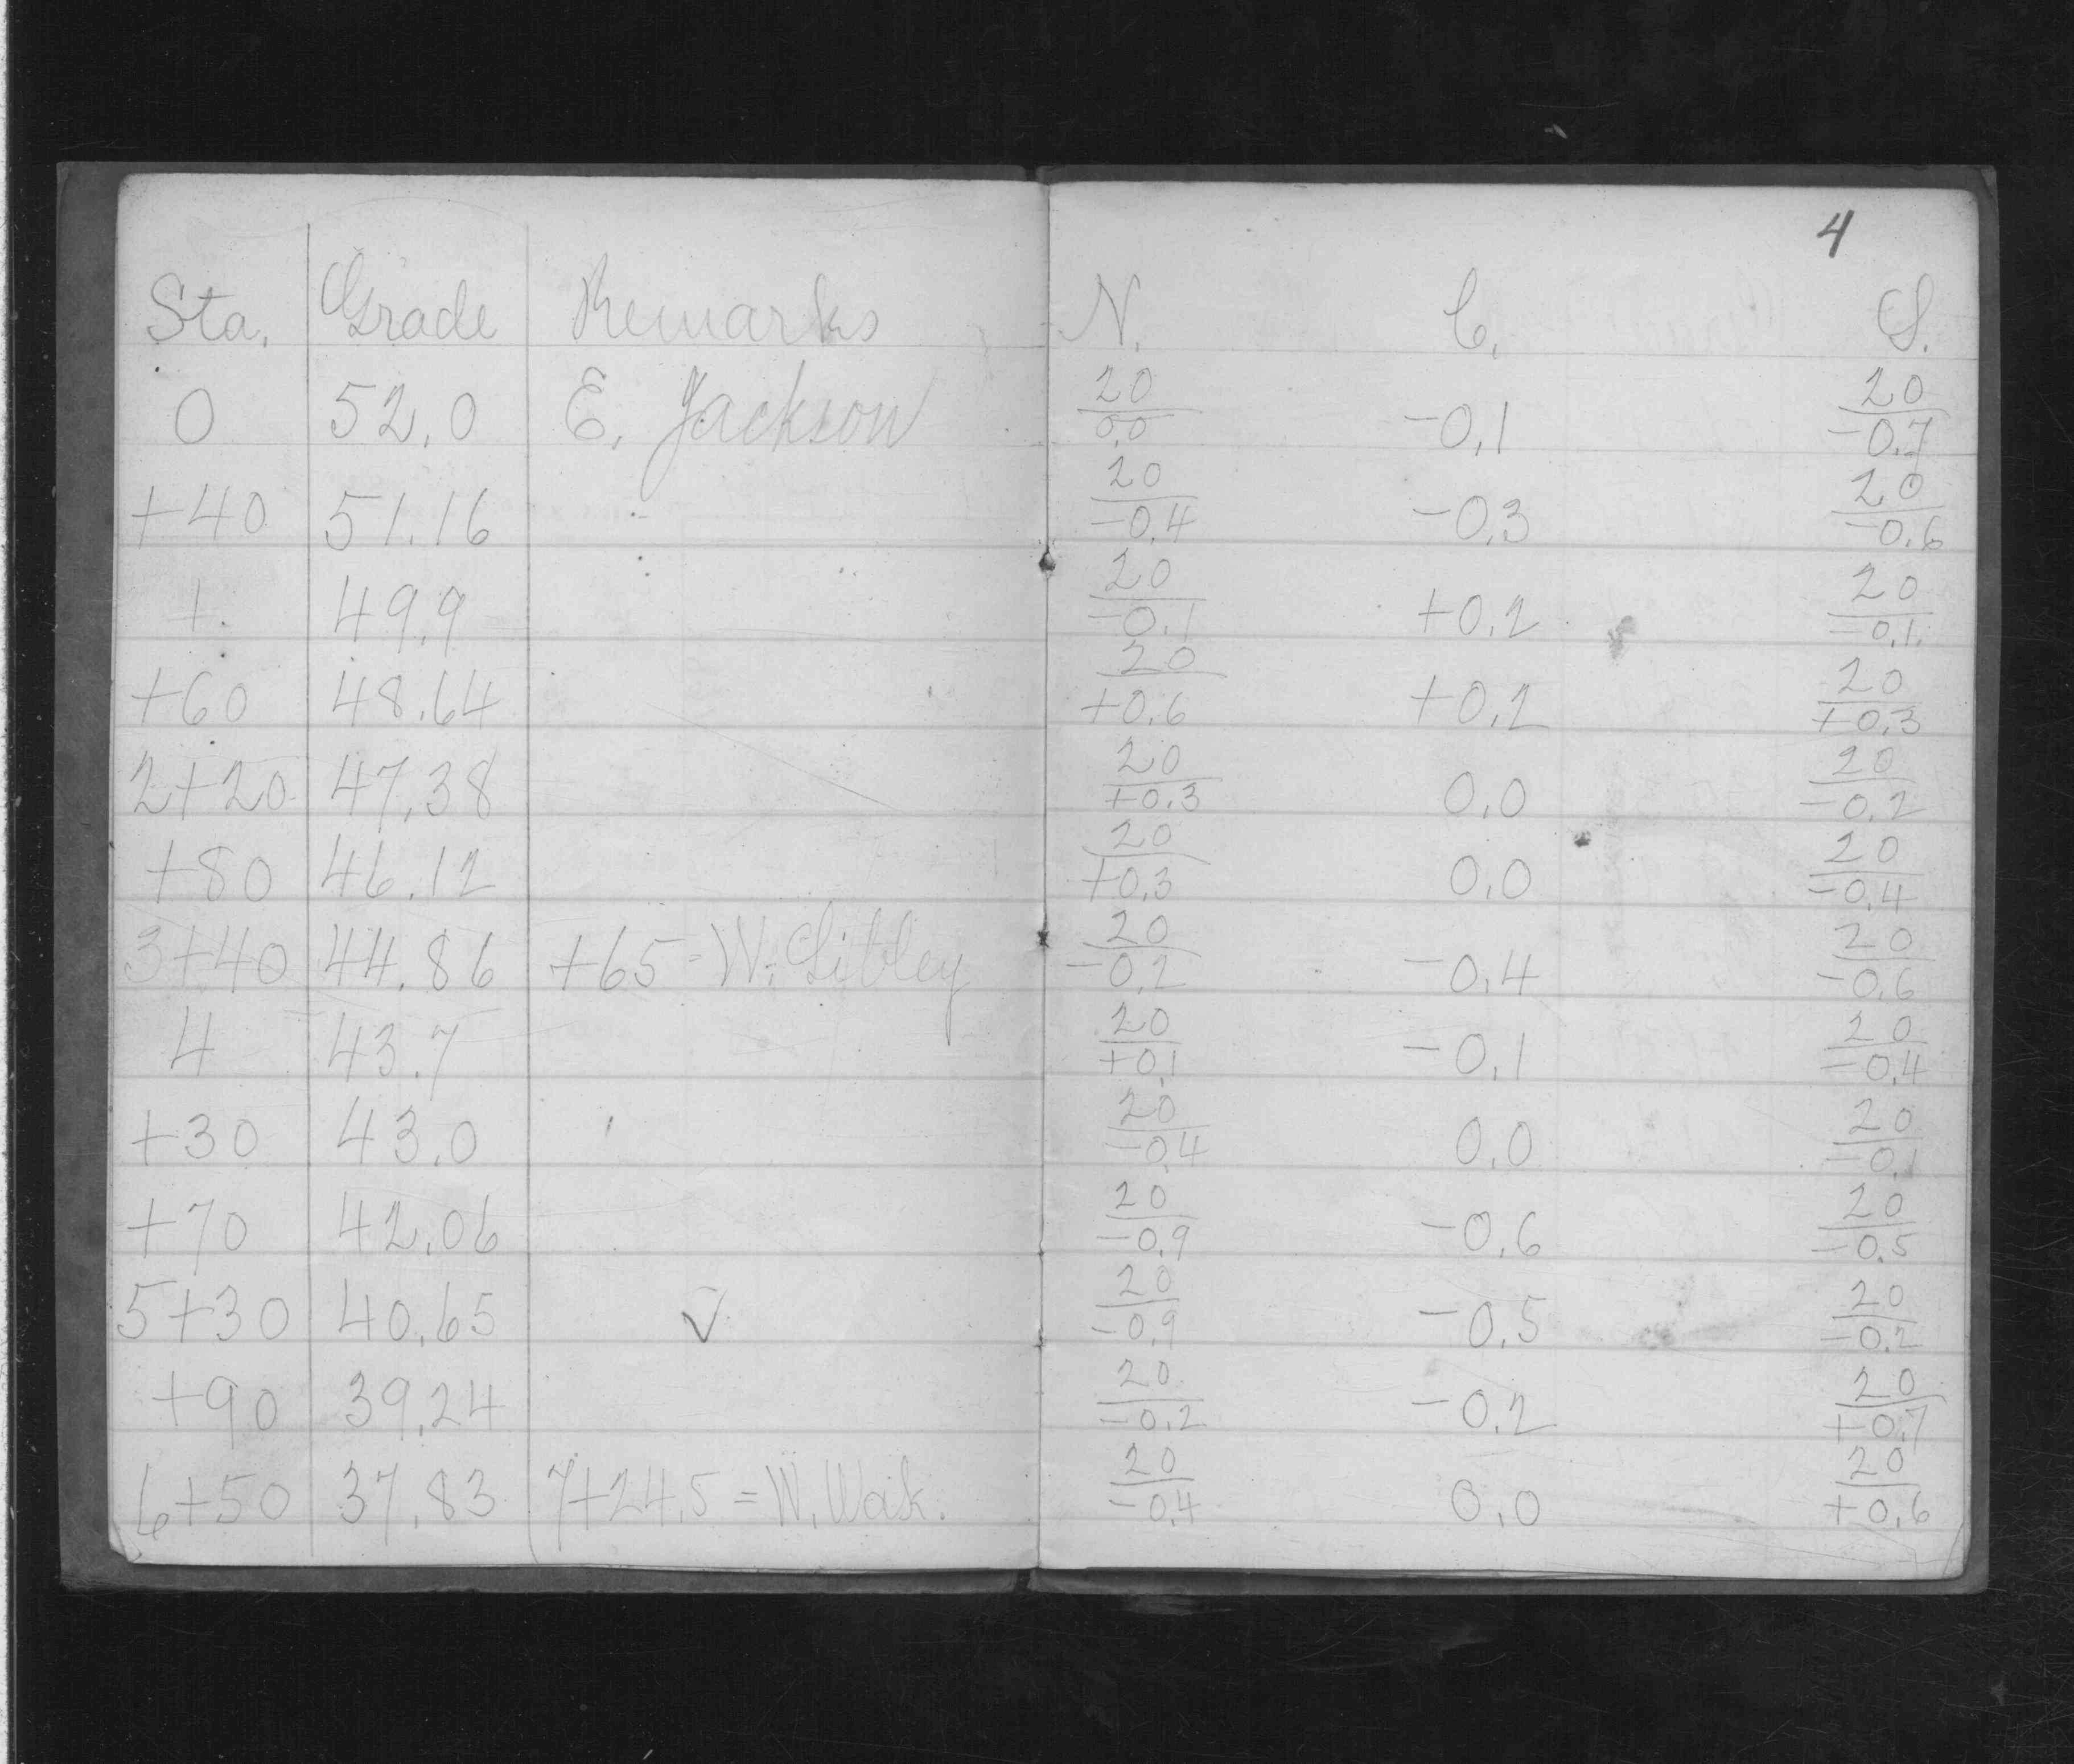 4
Sta. Grade Remarks N. C. S.
0 52.0 E. Jackson 20/0.0 -0.1 20/-0.7
+40 51.16 20/-0.4 -0.3 20/-0.6
1. 49.9 20/-0.1 +0.2 20/-0.1
+60 48.64 20/+0.6 +0.2 20/+0.3
2+20 47.38 20/+0.3 0.0 20/-0.2
+80 46.12 20/+0.3 0.0 20/-0.4
3+40 44.86 +65 = W. Sibley 20/-0.2 -0.4 20/-0.6
4 43.7 20/+0.1 -0.1 20/-0.4
+30 43.0 20/-0.4 0.0 20/-0.1
+70 42.06 20/-0.9 -0.6 20/-0.5
5+30 40.65 ✓ 20/-0.9 -0.5 20/-0.2
+90 39.24 20/-0.2 -0.2 20/+0.7
6+50 37.83 7+24.5 = W. 20/-0.4 0.0 20/+0.6